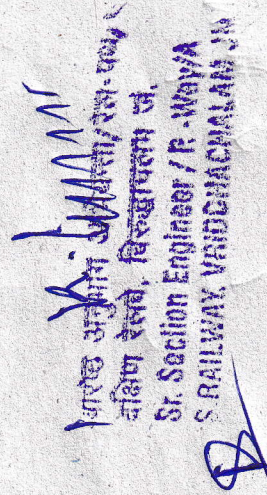 वरिष्ठ अनुभाग अभियंता/रेल-पथ/
दक्षिण रेलवे, विरुद्धाचलम जं.
Sr. Section Engineer / P.-Way/A
S. RAILWAY, VRIDDHACHALAM JN